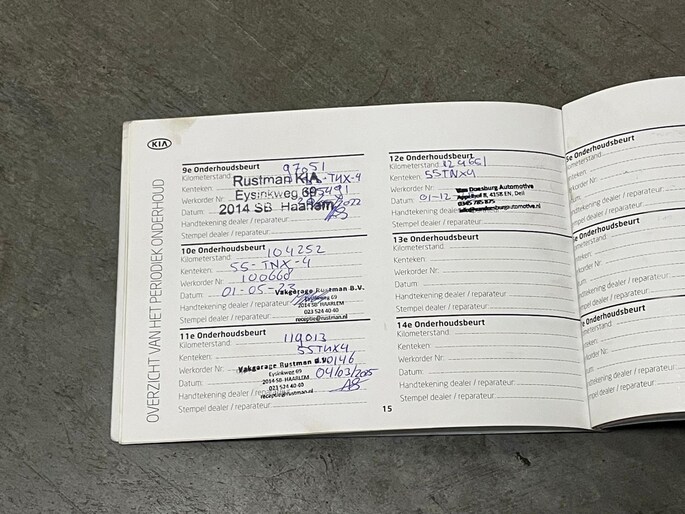 KIA
OVERZICHT VAN HET PERIODIEK ONDERHOUD
9e Onderhoudsbeurt
Kilometerstand: 97051
Kenteken: -TNX-4
Werkorder Nr: 5491
Datum: 2022
Handtekening dealer / reparateur:
Stempel dealer / reparateur:
Rustman KIA
Eysinkweg 69
2014 SB Haarlem
10e Onderhoudsbeurt
Kilometerstand: 104252
Kenteken: 55-TNX-4
Werkorder Nr: 100668
Datum: 01-05-23
Handtekening dealer / reparateur:
Stempel dealer / reparateur:
Vakgarage Rustman B.V.
Eysinkweg 69
2014 SB-HAARLEM
023 524 40 60
receptie@rustman.nl
11e Onderhoudsbeurt
Kilometerstand: 119013
Kenteken: 55TNX4
Werkorder Nr: 0146
Datum: 04/03/2005
Handtekening dealer / reparateur:
Stempel dealer / reparateur:
Vakgarage Rustman B.V.
Eysinkweg 69
2014 SB-HAARLEM
023 524 40 60
receptie@rustman.nl
12e Onderhoudsbeurt
Kilometerstand: 124661
Kenteken: 55TNX4
Werkorder Nr:
Datum: 01-12
Handtekening dealer
Stempel dealer / reparateur:
Van Doesburg Automotive
Appeldijk 8, 4158 EN, Deil
0345 785 875
info@vandoesburgautomotive.nl
13e Onderhoudsbeurt
Kilometerstand:
Kenteken:
Werkorder Nr:
Datum:
Handtekening dealer / reparateur:
Stempel dealer / reparateur:
14e Onderhoudsbeurt
Kilometerstand:
Kenteken:
Werkorder Nr:
Datum:
Handtekening dealer / reparateur:
Stempel dealer / reparateur:
15
5e Onderhoudsbeurt
Kilometerstand:
Kenteken:
Werkorder Nr:
Datum:
Handtekening dealer / reparateur
Stempel dealer / reparateur:
Onderhoudsbeurt
Kilometerstand:
Kenteken:
Werkorder Nr:
Datum:
Handtekening dealer / reparateur
Stempel dealer / reparateur:
Onderhoudsbeurt
Kilometerstand:
Kenteken:
Werkorder Nr:
Datum:
Handtekening dealer / reparateur:
Stempel dealer / reparateur: